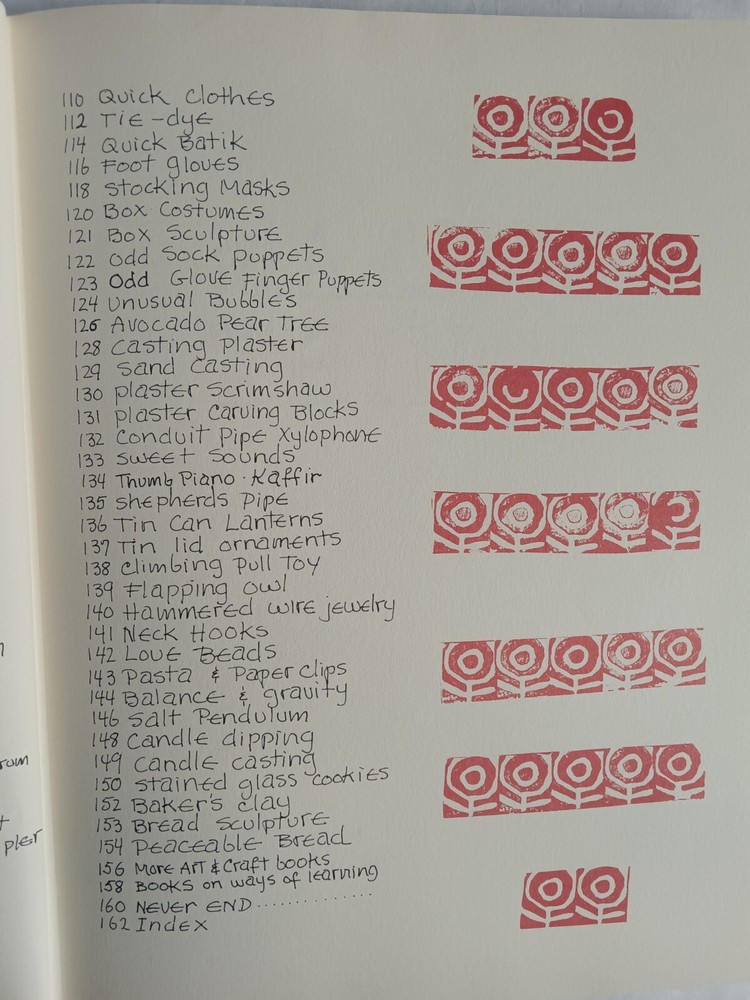 110 Quick Clothes
112 Tie-dye
114 Quick Batik
116 Foot gloves
118 Stocking Masks
120 Box Costumes
121 Box Sculpture
122 Odd Sock puppets
123 Odd Glove Finger Puppets
124 Unusual Bubbles
126 Avocado Pear Tree
128 Casting Plaster
129 Sand Casting
130 Plaster Scrimshaw
131 Plaster Carving Blocks
132 Conduit Pipe Xylophone
133 Sweet Sounds
134 Thumb Piano · Kaffir
135 Shepherds Pipe
136 Tin Can Lanterns
137 Tin lid ornaments
138 Climbing Pull Toy
139 Flapping Owl
140 Hammered wire jewelry
141 Neck Hooks
142 Love Beads
143 Pasta & Paper Clips
144 Balance & gravity
146 Salt Pendulum
148 Candle dipping
149 Candle casting
150 Stained glass cookies
152 Baker's clay
153 Bread Sculpture
154 Peaceable Bread
156 More Art & Craft books
158 Books on ways of learning
160 Never End..............
162 Index
pler